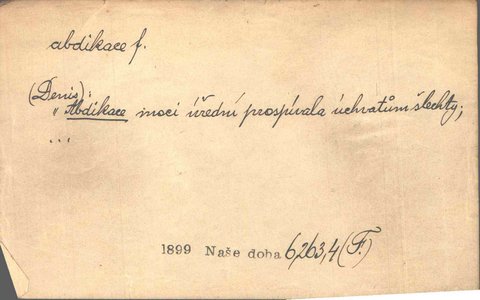 abdikace f.
(Denis): 
„Abdikace moci úřední prospívala úchvatům šlechty;
...
1899 Naše doba 6,263,4 (F.)